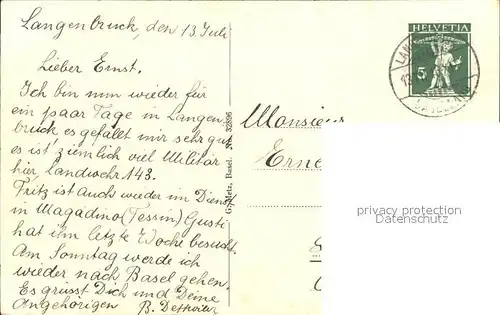 Langenbruck, den 13 Juli
Lieber Ernst.
Ich bin nun wieder für
ein paar Tage in Langen
bruck, es gefällt mir sehr gut
es ist ziemlich viel Militär
hier, Landwehr 143.
Fritz ist auch wieder im Dienst
in Magadino (Tessin) Gusti
hat ihn letzte Woche besucht.
Am Sonntag werde ich
wieder nach Basel gehen.
Es grüsst Dich und Deine
Angehörigen B.
G. Metz, Basel. No. 32896
HELVETIA
5
Monsieur
Erne
privacy protection
Datenschutz